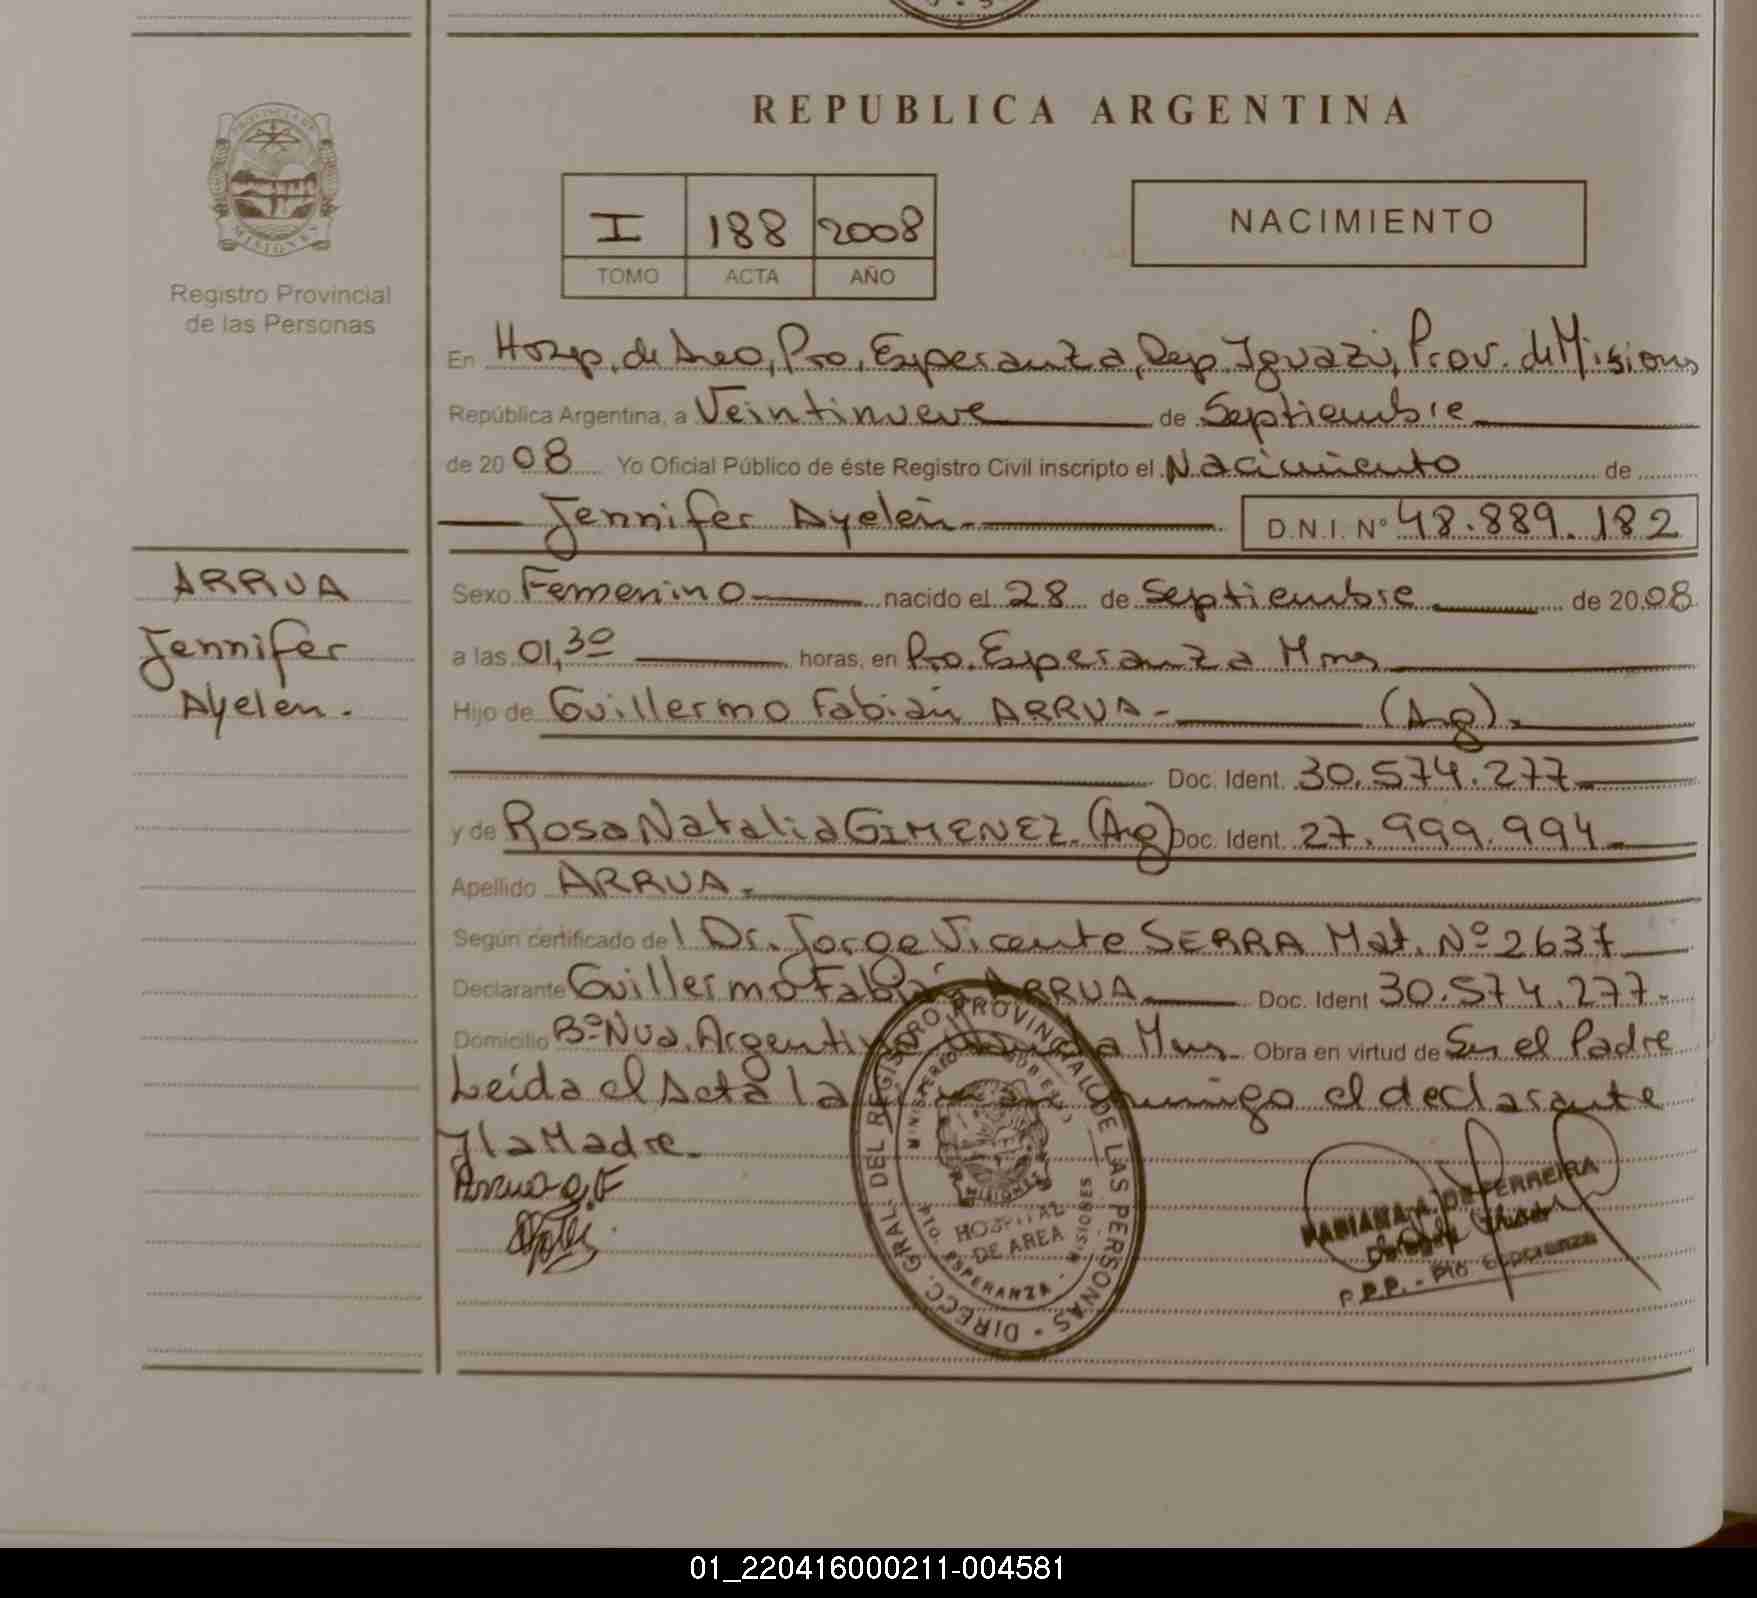 REPUBLICA ARGENTINA
PROVINCIA DE
MISIONES
Registro Provincial
de las Personas
I 188 2008
TOMO ACTA AÑO
NACIMIENTO
En Hosp. de Area, Pto. Esperanza, Dep. Iguazú, Prov. de Misiones
República Argentina, a Veintinueve de Septiembre
de 2008 Yo Oficial Público de éste Registro Civil inscripto el Nacimiento de
Jennifer Ayelén. D.N.I. Nº 48.889.182
ARRUA
Jennifer
Ayelen.
Sexo Femenino nacido el 28 de Septiembre de 2008
a las 01,30 horas, en Pto. Esperanza Mnes
Hijo de Guillermo Fabián ARRUA - (Arg).
Doc. Ident. 30.574.277
y de Rosa Natalia GIMENEZ. (Arg) Doc. Ident. 27.999.994
Apellido ARRUA.
Según certificado del Dr. Jorge Vicente SERRA Mat. Nº 2637
Declarante Guillermo Fabián ARRUA Doc. Ident 30.574.277.
Domicilio Bº Nva. Argentina Mnes. Obra en virtud de Ser el Padre
Leída el Acta la conmigo el declarante
y la Madre.
Arrua G.F
DIRECC. GRAL. DEL REGISTRO PROVINCIAL DE LAS PERSONAS
MINISTERIO DE GOBIERNO
MISIONES
HOSPITAL
DE AREA
PTO. ESPERANZA - MISIONES
FABIANA A. DE FERREIRA
Delegada Titular
R.P.P. - Pto Esperanza
01_220416000211-004581